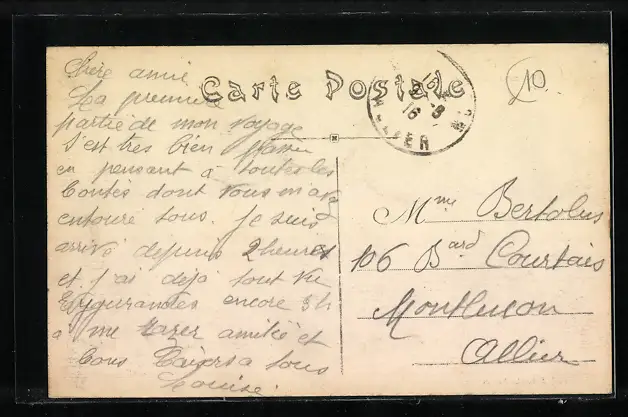 Chère amie
La premie
partie de mon voyage
S'est très bien passée
en pensant à toutes les
bontés dont vous m'avez
entouré tous. je suis
arrivé depuis 2 heures
et j'ai déjà tout vu
encore 3h
à me amitié et
bons Baisers à tous
Louise.
Carte Postale
10
Mme Bertolus
106 Bard Courtais
Montlucon
Allier